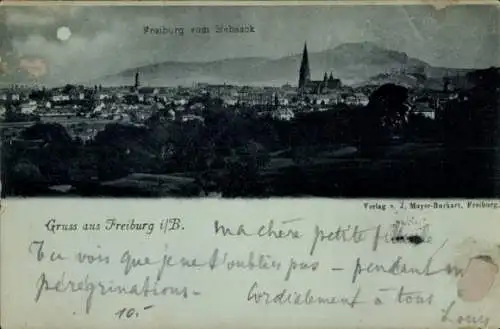 Freiburg vom Bebsack
Verlag v. J. Mayer-Burkart, Freiburg.
Gruss aus Freiburg i/B.
Ma chère petite
Tu vois que je ne t'oublies pas – pendant
pérégrinations –
Cordialement à tous
10.-